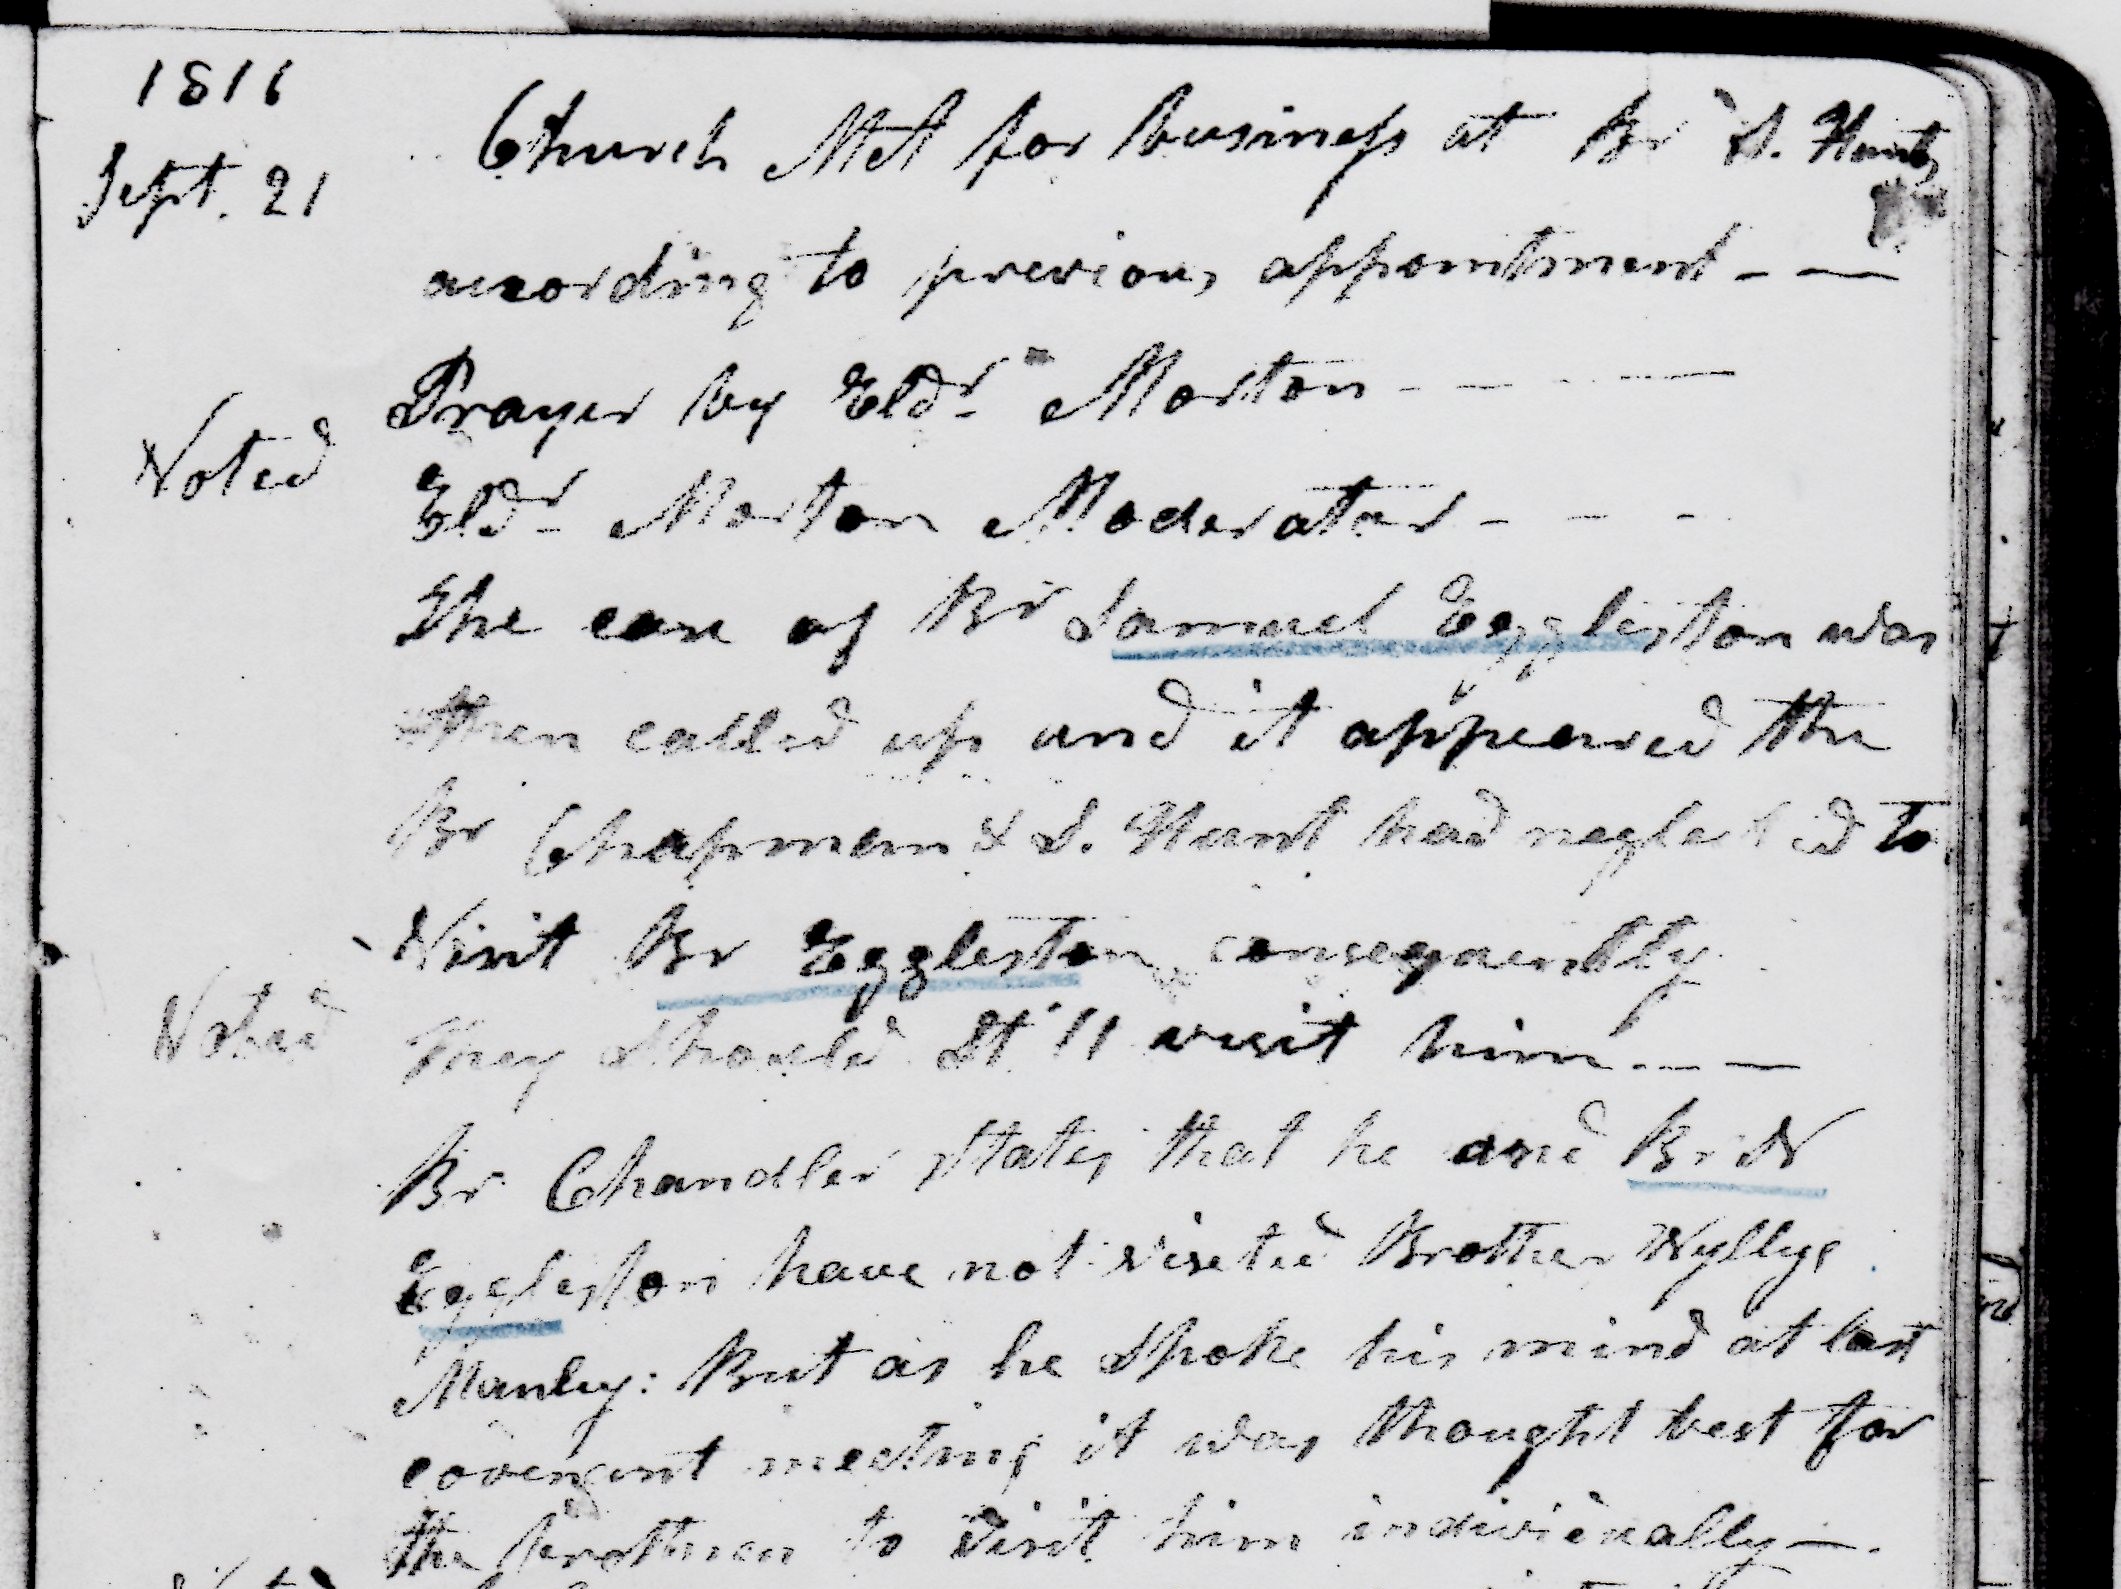 1816
Sept. 21
Church Met for business at Br S. Hunts
according to previous appointment - - -
Prayer by Eldr Morton - - - -
Noted
Eldr Morton Moderator - - -
The case of Br Samuel Eggleston was
then called up and it appeared the
Br Chapman & S. Hunt had neglected to
Visit Br Eggleston consequently
Noted
They should Still visit him - - -
Br Chandler states that he and Br N
Eggleston have not viseted Brother Wyllys
Manley: But as he Spoke his mind at last
covenent meeting it was thought best for
the brethren to Visit him individually - .